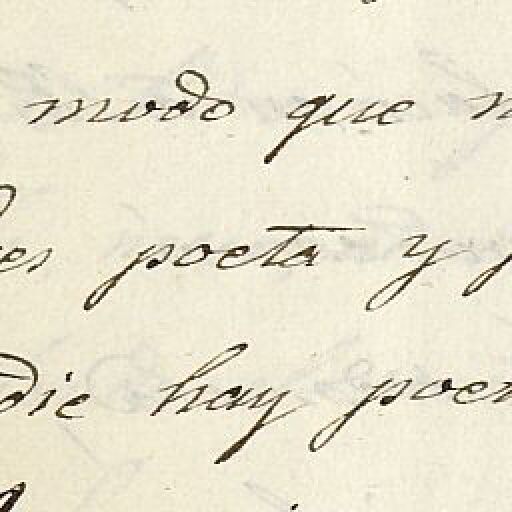 modo que
es poeta y
die hay poe